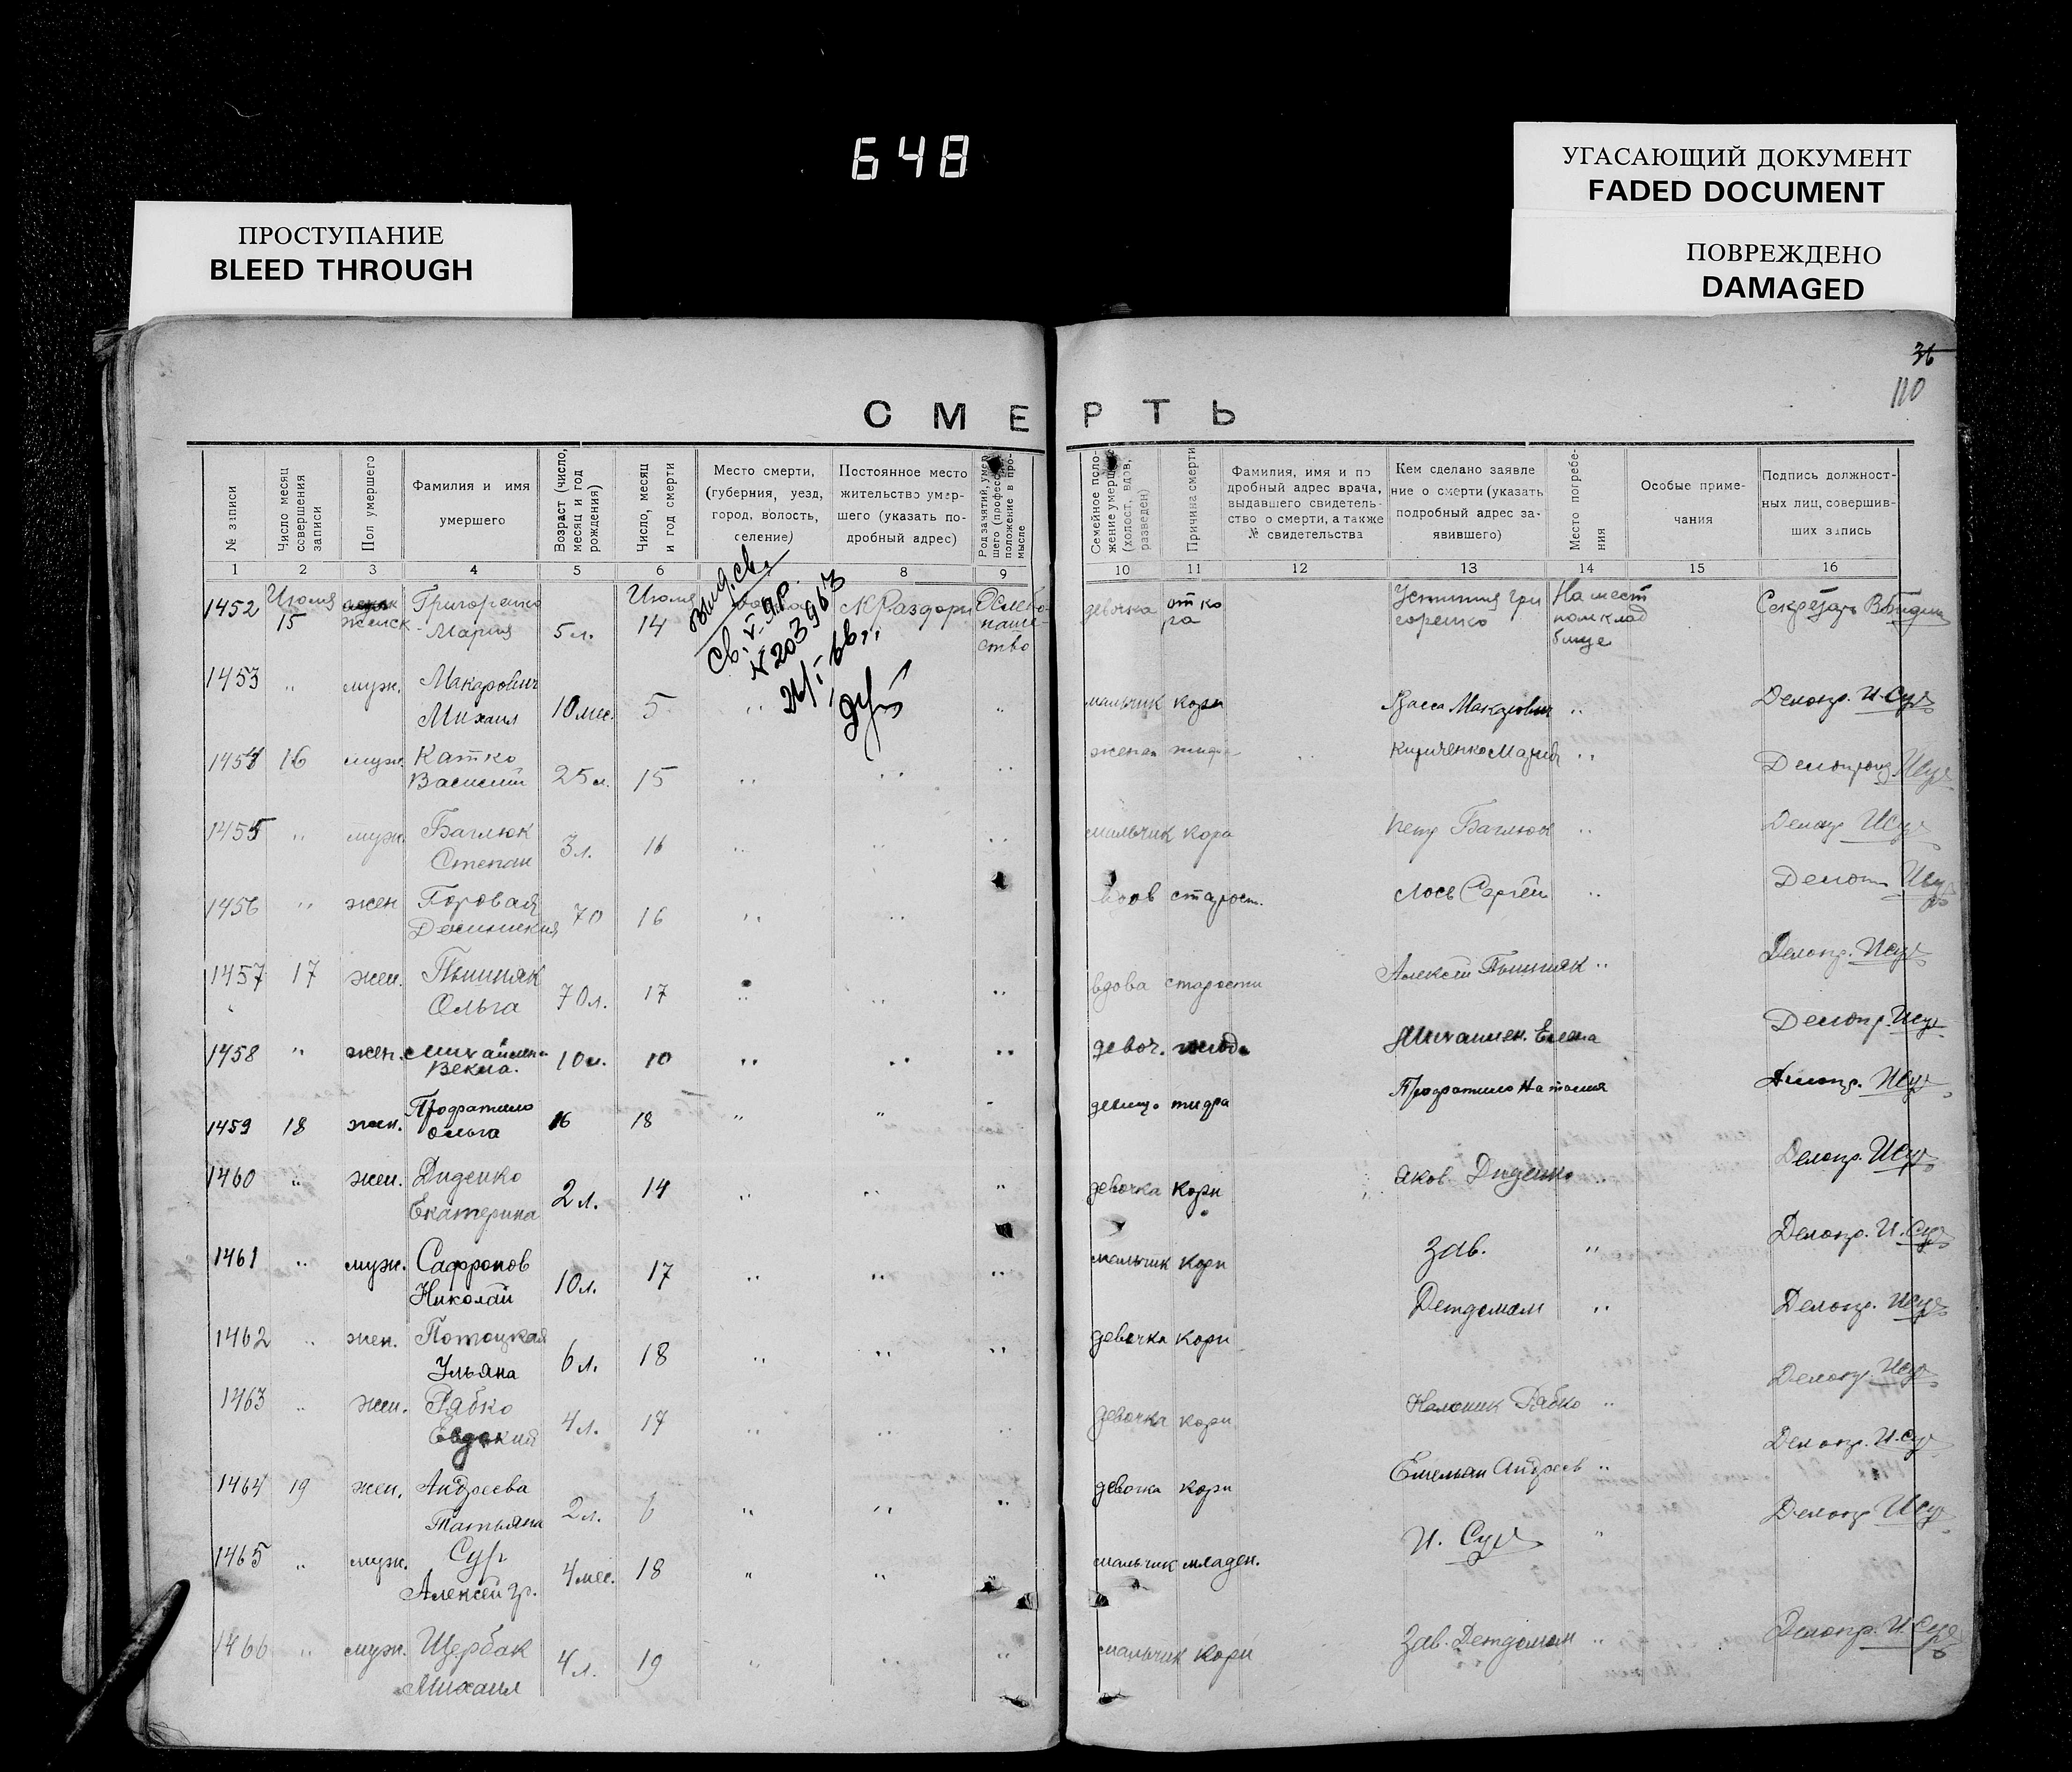 648
УГАСАЮЩИЙ ДОКУМЕНТ
FADED DOCUMENT
ПРОСТУПАНИЕ
BLEED THROUGH
ПОВРЕЖДЕНО
DAMAGED
36
110
СМЕРТЬ
№ записи
Число месяц совершения записи
Пол умершего
Фамилия и имя умершего
Возраст (число, месяц и год рождения)
Число, месяц и год смерти
Место смерти, (губерния, уезд, город, волость, селение)
Постоянное место жительство умершего (указать подробный адрес)
Род занятий, умершего (профессия положение в промысле
Семейное положение умершего (холост, вдов, разведен)
Причина смерти
Фамилия, имя и подробный адрес врача, выдавшего свидетельство о смерти, а также № свидетельства
Кем сделано заявление о смерти (указать подробный адрес заявившего)
Место погребения
Особые примечания
Подпись должностных лиц, совершивших запись
1 2 3 4 5 6 7 8 9 10 11 12 13 14 15 16
1452 Июля 15 женск Григоренко Мария 5 л. Июля 14 девочка от кора Устиния Григоренко На мест ном кладбище Секретарь
Св. № 203963
1453 " муж. Макарович Михаил 10 мес. 5 " " мальчик кори Васса Макарович " Делопр. И. Сур
1454 16 муж. Катко Василий 25 л. 15 " " " женат Кириченко Мария " Делопр
1455 " муж. Баглюк Степан 3 л. 16 " " " мальчик кора Петр Баглюк "
1456 " жен Горовая 70 16 " " вдов старост. Лось Сергей "
1457 17 жен. Ольга 70 л. 17 " " " вдова старости Алексей " Делопр.
1458 " жен. 10 " " " девоч. Елена Делопр.
1459 18 жен. Ольга 16 18 " " девица Делопр.
1460 " жен. Диденко Екатерина 2 л. 14 " " " девочка кори Яков Диденко " Делопр.
1461 " муж. Сафронов Николай 10 л. 17 " " " мальчик кори Зав. " Делопр. И. Сур
1462 " жен. Потоцкая Ульяна 6 л. 18 " " " девочка кори Детдомом " Делопр.
1463 " жен. Рябко Евдокия 4 л. 17 " " " девочка кори Рябко " Делопр.
1464 19 жен. Андреева Татьяна 2 л. " " " девочка кори Емельян Андреев " Делопр. И. Сур
1465 " муж. Сур Алексей Гр. 4 мес. 18 " " мальчик младен. И. Сур " Делопр
1466 " муж. Щербак Михаил 4 л. 19 " " " мальчик кори Зав. Детдомом " Делопр. И. Сур